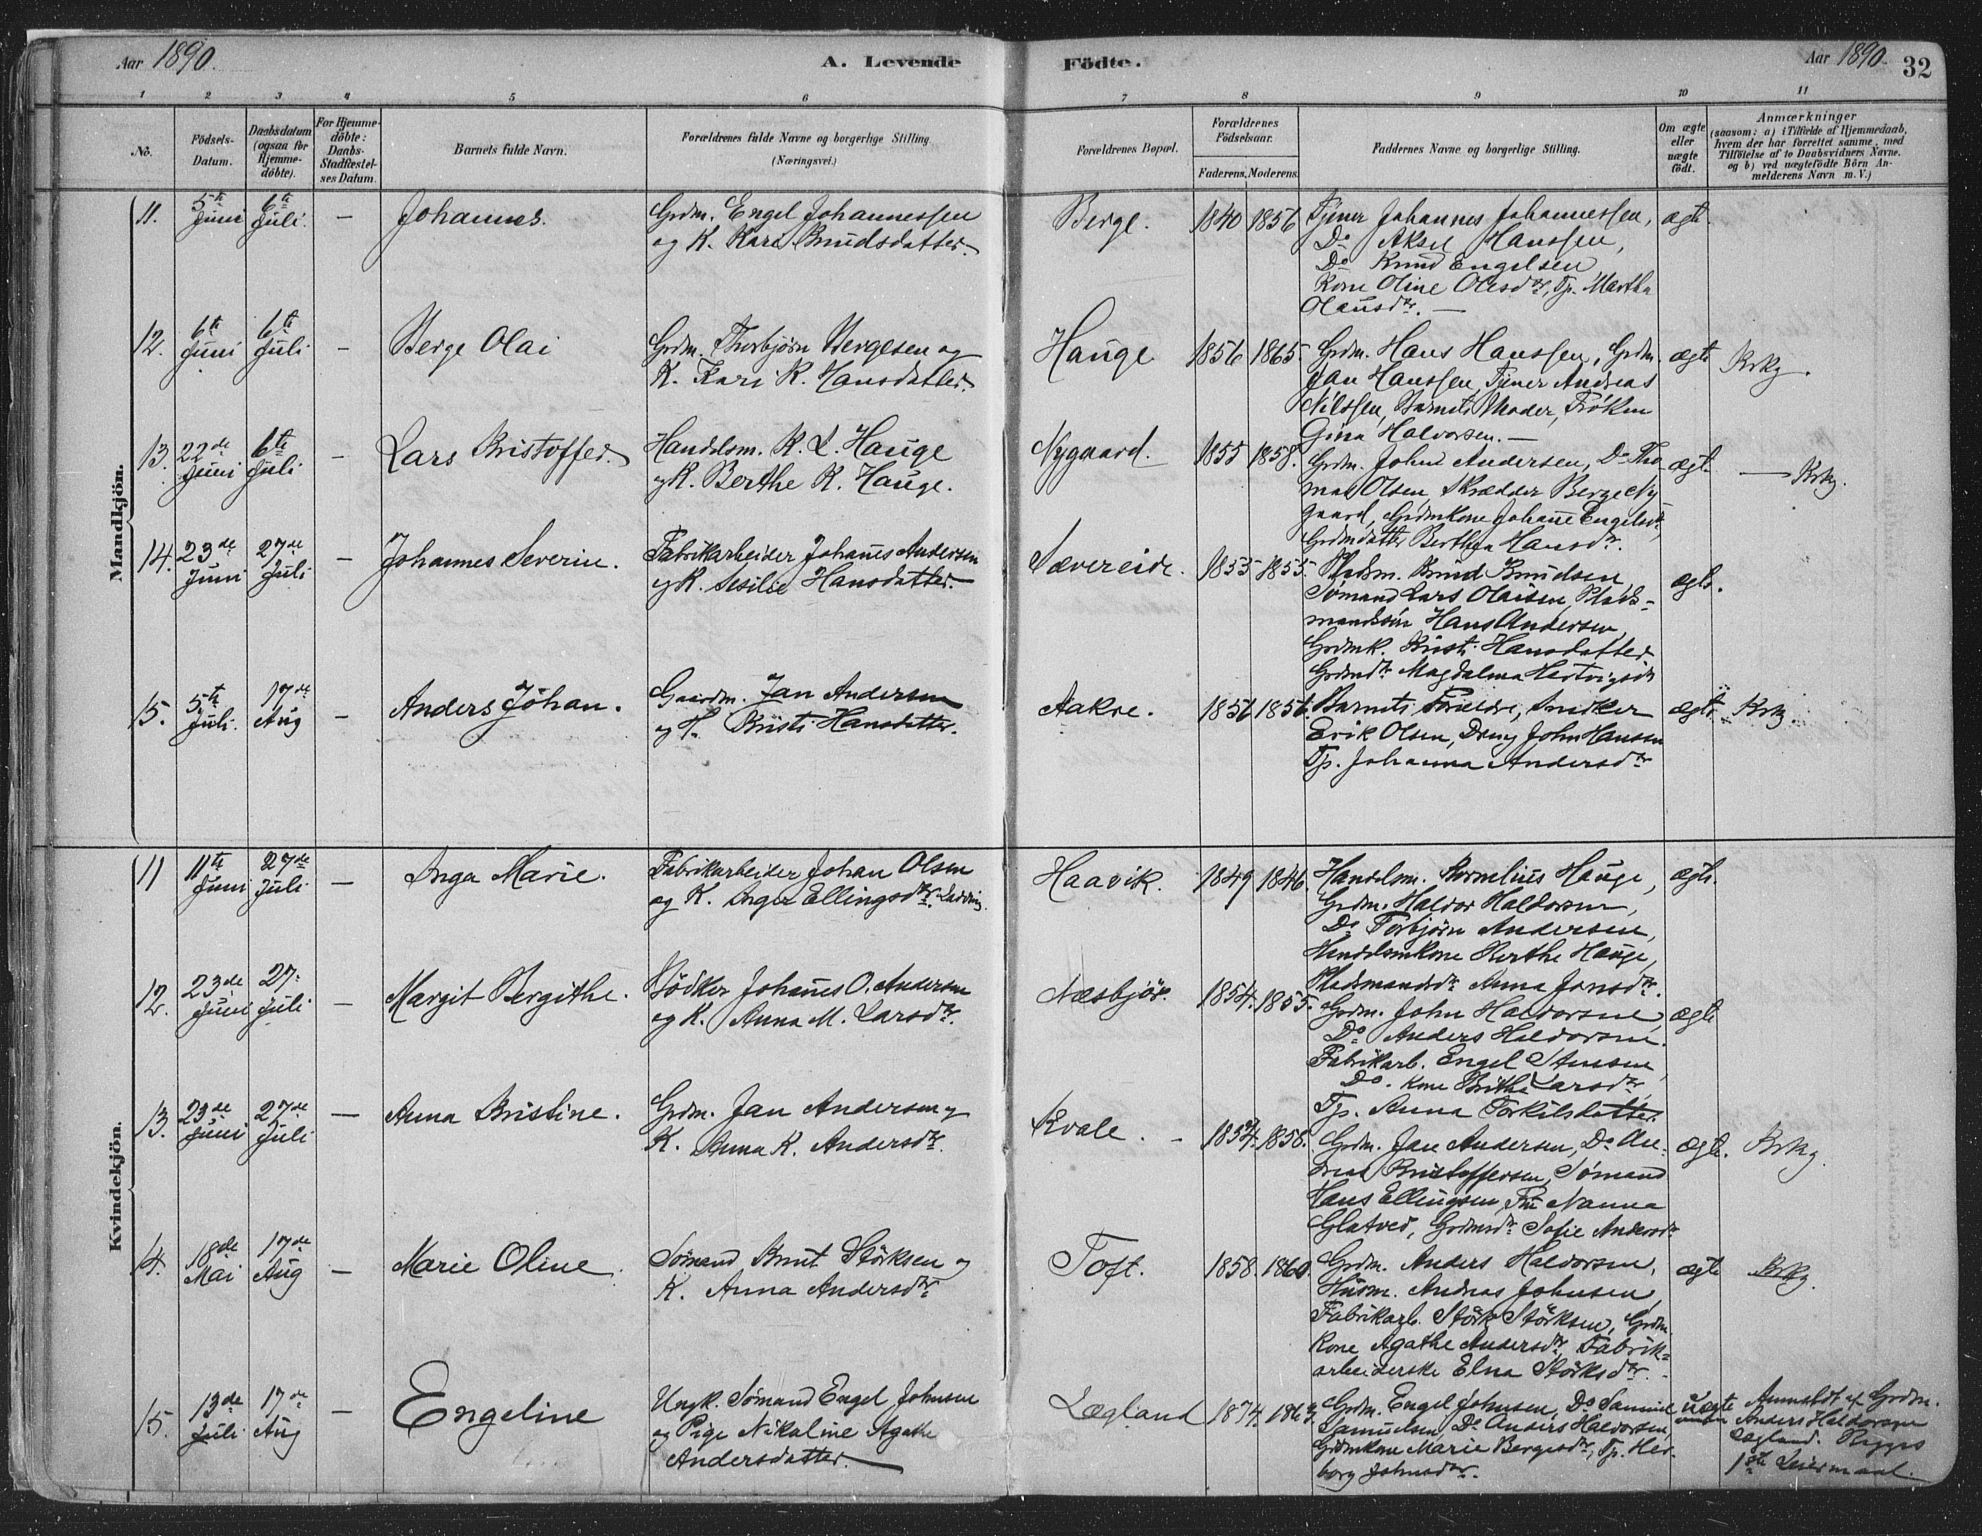 Aar 1890.
A. Levende Födte.
Aar 1890.
32
1 2 3 4 5 6 7 8 9 10 11
No.
Födsels-Datum.
Daabsdatum (ogsaa for Hjemmedöbte).
For Hjemmedöbte: Daabs-Stadfæstelses Datum.
Barnets fulde Navn.
Forældrenes fulde Navne og borgerlige Stilling (Næringsvei.)
Forældrenes Bopæl.
Forældrenes Födselsaar.
Faderens. Moderens.
Faddernes Navne og borgerlige Stilling.
Om ægte eller uægte födt.
Anmærkninger
(saasom: a) i Tilfælde af Hjemmedaab,
hvem der har forrettet samme, med
Tilföielse af to Daabsvidners Navne.
og b) ved uægtefödte Börn An-
melderens Navn m. V.)
Mandkjön.
11. 5th Juni 6th Juli. — Johannes.
Grdm. Engel Johannessen
og K. Kari Knudsdatter.
Berge. 1840 1856
Tjener Johannes Johannessen,
Do Aksel Hanssen,
Do Knud Engelsen
Kone Oline Olesdtr, Tp. Martha
Olausdtr. —
ægte.
12. 6th Juni 6th Juli — Berge Olai
Grdm. Thorbjørn Bergesen og
K. Kari K. Hansdatter.
Hauge 1856 1865
Grdm. Hans Hanssen, Grdm.
Jan Hanssen, Tjener Andreas
Nilssen, Barnets Moder, Frøken
Gina Halvorsen. —
ægte Krkg.
13. 22de Juni 6th Juli — Lars Kristoffer.
Handelsm. K. L. Hauge
og K. Berthe K. Hauge.
Nygaard. 1855 1858.
Grdm. John Andersen, Do Tho-
mas Olsen, Skrædder Berge Ny-
gaard, Grdmkone Johane Engelsdtr,
Grdmdatter Berthea Hansdtr.
ægte — Krkg.
14. 23de Juni 27de Juli — Johannes Severin.
Fabrikarbeider Johanes Andersen
og K. Sesilie Hansdatter.
Sævereide. 1853 1855.
Pladsm. Knud Knudsen,
Sømand Lars Olaisen, Plads-
mandssøn Hans Andersen,
Grdmk. Kristi Hansdatter
Grdmdtr Magdalena Hartvigsdtr
ægte.
15. 5th Juli. 17de Aug — Anders Johan.
Gaardm. Jan Andersen
og K. Kristi Hansdatter.
Aakre. 1856 1856.
Barnets Forældre, Snedker
Erik Olsen, Dreng John Hansen
Tp. Johanna Andersdtr
ægte Krkg.
Kvindekjön.
11 11th Juni 27de Juli. — Inga Marie.
Fabrikarbeider Johan Olsen
og K. Inger Ellingsdtr.
Haavik. 1849 1846.
Handelsm. Kornelius Hauge,
Grdm. Haldor Haldorsen,
Do Torbjørn Andersen,
Handelsmkone Berthe Hauge,
Pladsmandsdtr Anna Jansdtr.
ægte.
12. 23de Juni 27. Juli — Margit Bergithe.
Bödker Johanes O. Andersen
og K. Anna M. Larsdtr.
Næsbjør. 1854. 1855.
Grdm. John Haldorsen,
Do Anders Haldorsen.
Fabrikarb. Engel Stensen,
Do. kone Brithe Larsdtr,
Tp. Anna Torkilsdatter.
ægte
13. 23de Juni 27de Juli — Anna Kristine.
Grdm. Jan Andersen og
K. Anna K. Andersdtr.
Kvale. — 1854. 1858.
Grdm. Jan Andersen, Do An-
dreas Kristoffersen, Sømand
Hans Ellingsen, Fru Nanna
Glatved, Grdmdtr Sofie Andersdtr
ægte. Krkg.
14. 18de Mai 17de Aug — Marie Oline.
Sømand Knut Störksen og
K. Anna Andersdtr.
Toft. 1858. 1860.
Grdm. Anders Haldorsen,
Husm. Andreas Johnsen,
Fabrikarb. Störk Störksen, Grdm.
kone Agathe Andersdtr, Fabrik-
arbeiderske Elna Störksdtr.
ægte Krkg.
15. 13de Juli 17de Aug — Engeline
Ungk. Sømand Engel Johnsen
og Pige Nikoline Agathe
Andersdatter.
Lægland 1874.
Grdm. Engel Johnsen, Do Samuel
Samuelsen, Do Anders Haldorsen,
Grdmkone Marie Bergesdtr, Tp. Her-
borg Johnsdtr.
uægte
Anmeldt af Grdm.
Anders Haldorsen
Lægland.
1ste Leiermaal.